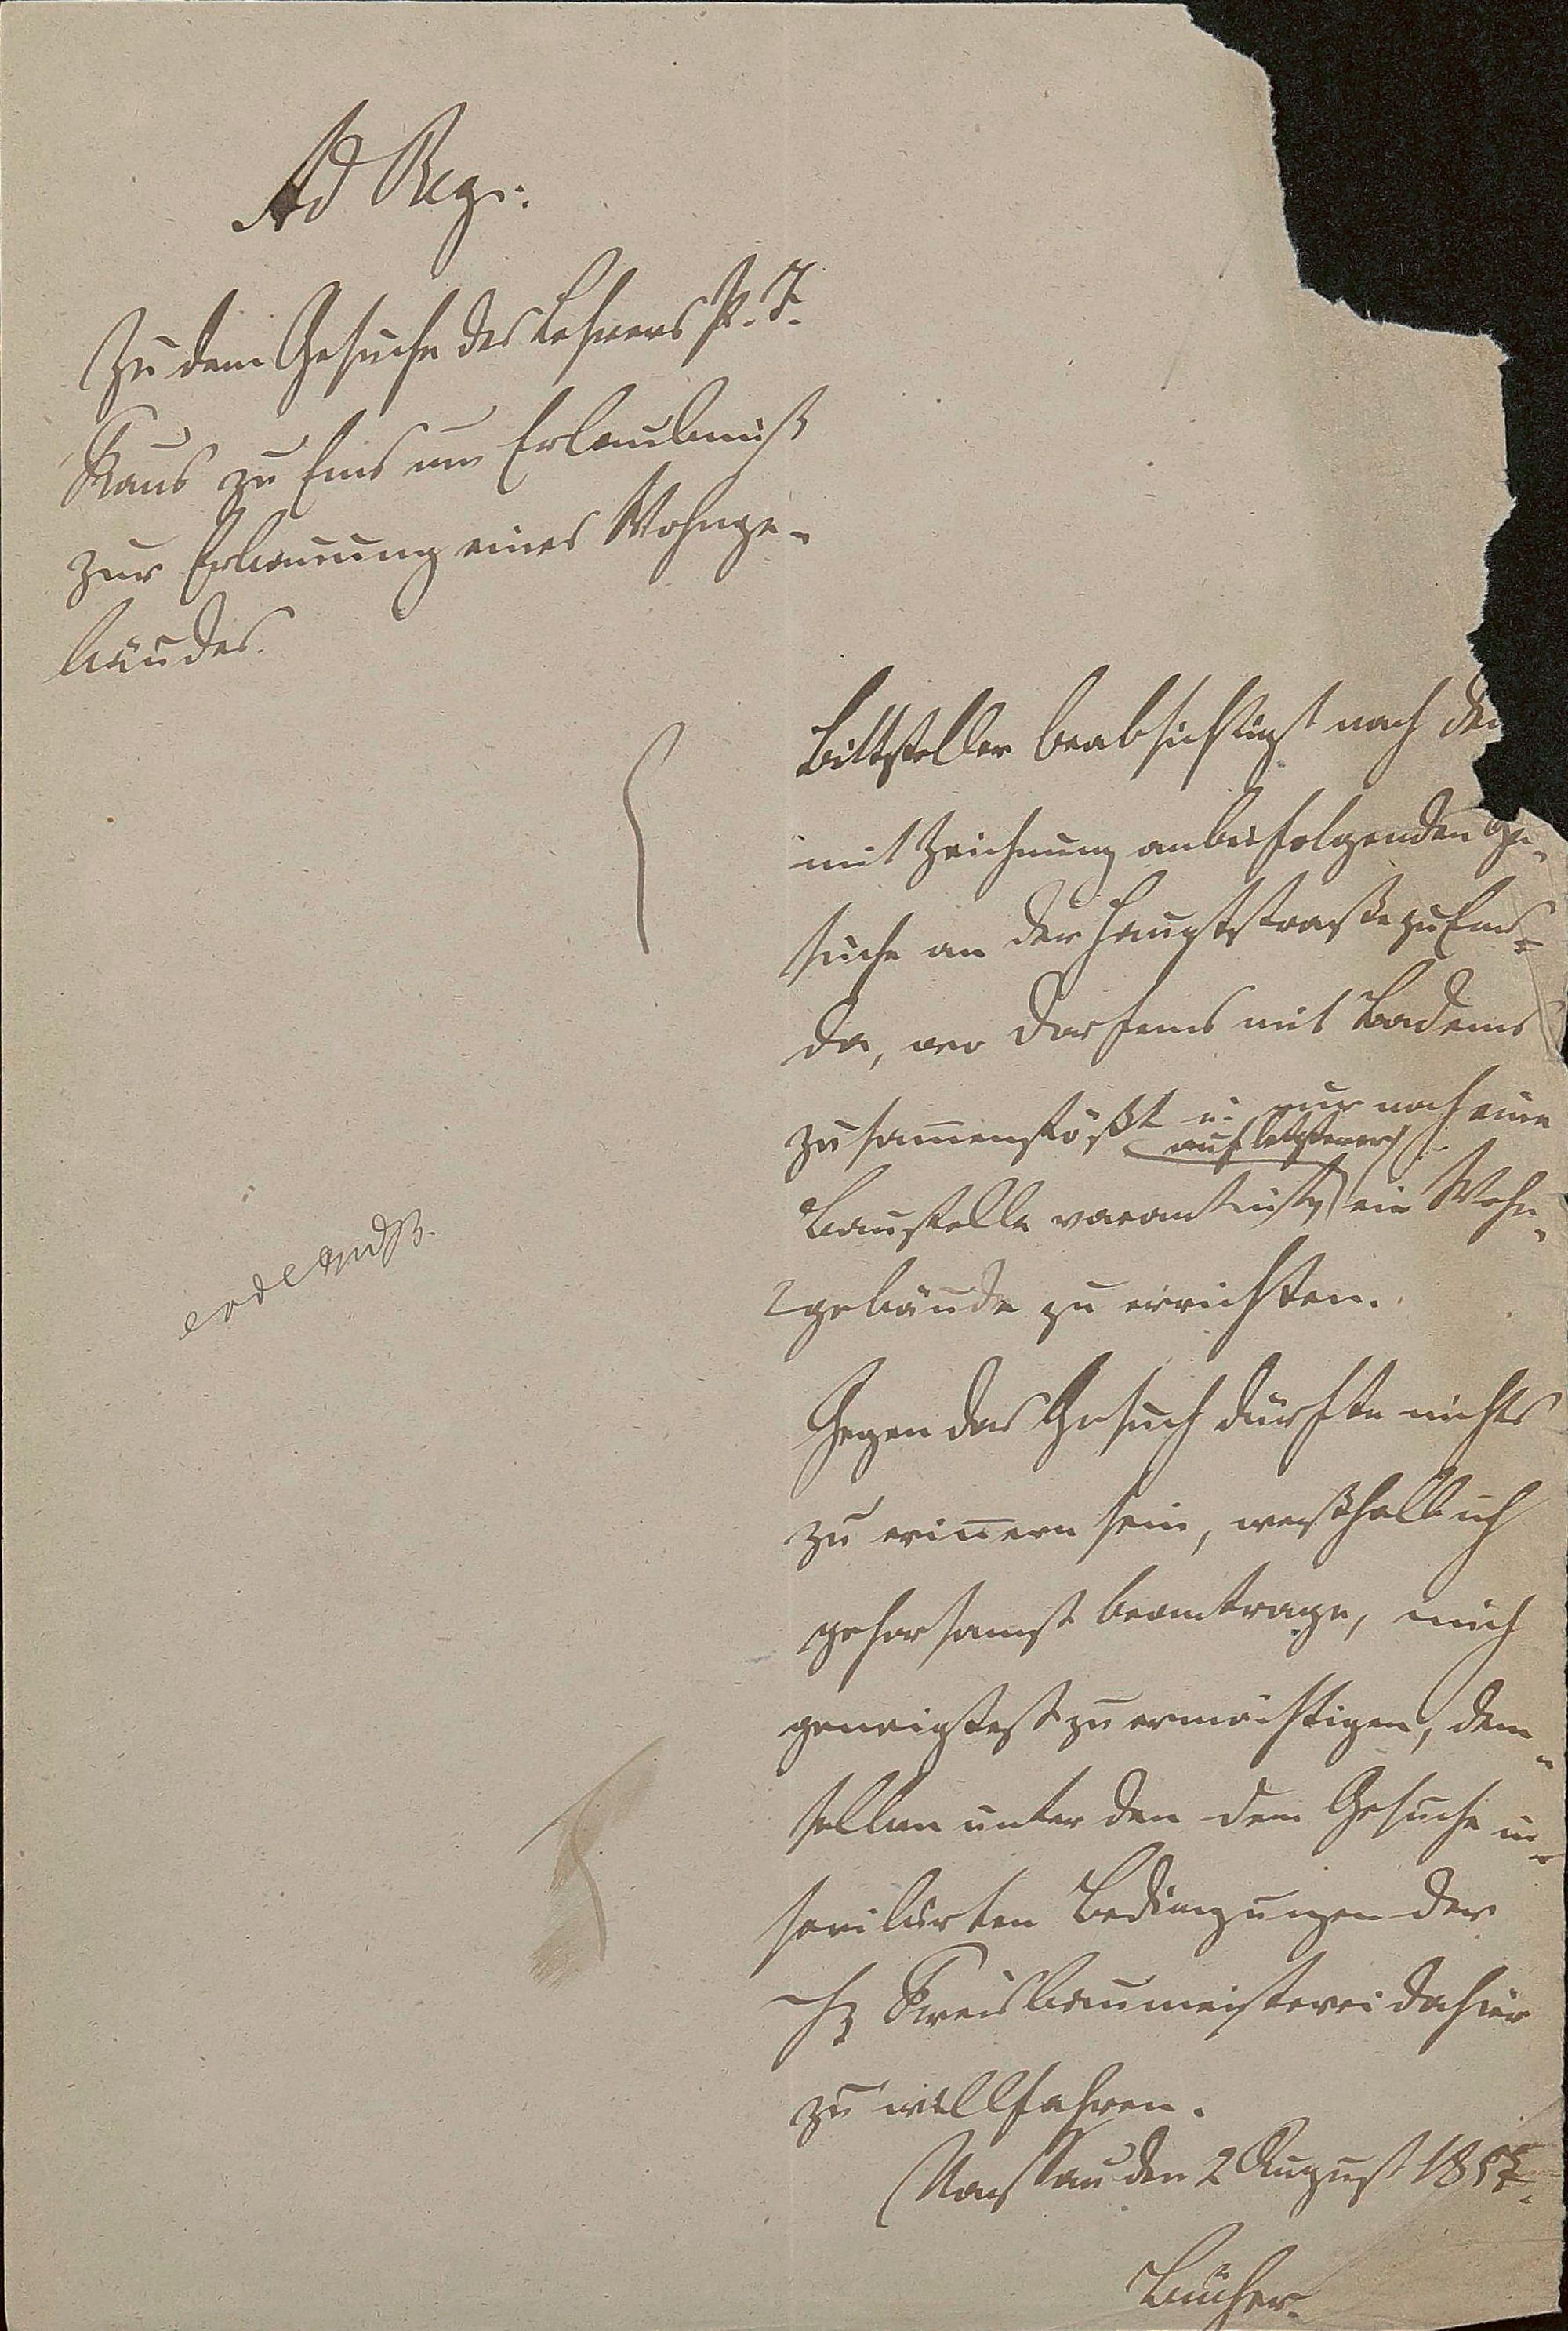 Ad Reg.:
Zu dem Gesuche des Lehrers P. J.
Kaus zu Ems um Erlaubniß
zur Erbauung eines Wohnge-
bäudes.
Bittsteller beabsichtigt nach dem
mit Zeichnung anbei folgenden Ge-
suche an der Hauptstraße zu Ems,
da, wo Dorfems mit Badems
zusammenstößt u. nur noch eine
Baustelle vacant ist, auf letzterer ein Wohn-
gebäude zu errichten.
Gegen das Gesuch dürfte nichts
zu erinnern sein, weßhalb ich
gehorsamst beantrage, mich
geneigtest zu ermächtigen, dem-
selben unter den dem Gesuche in-
serirten Bedingungen der
Hz Kreisbaumeisterei dahier
zu willfahren.
Nassau den 2 August 185
Bücher.